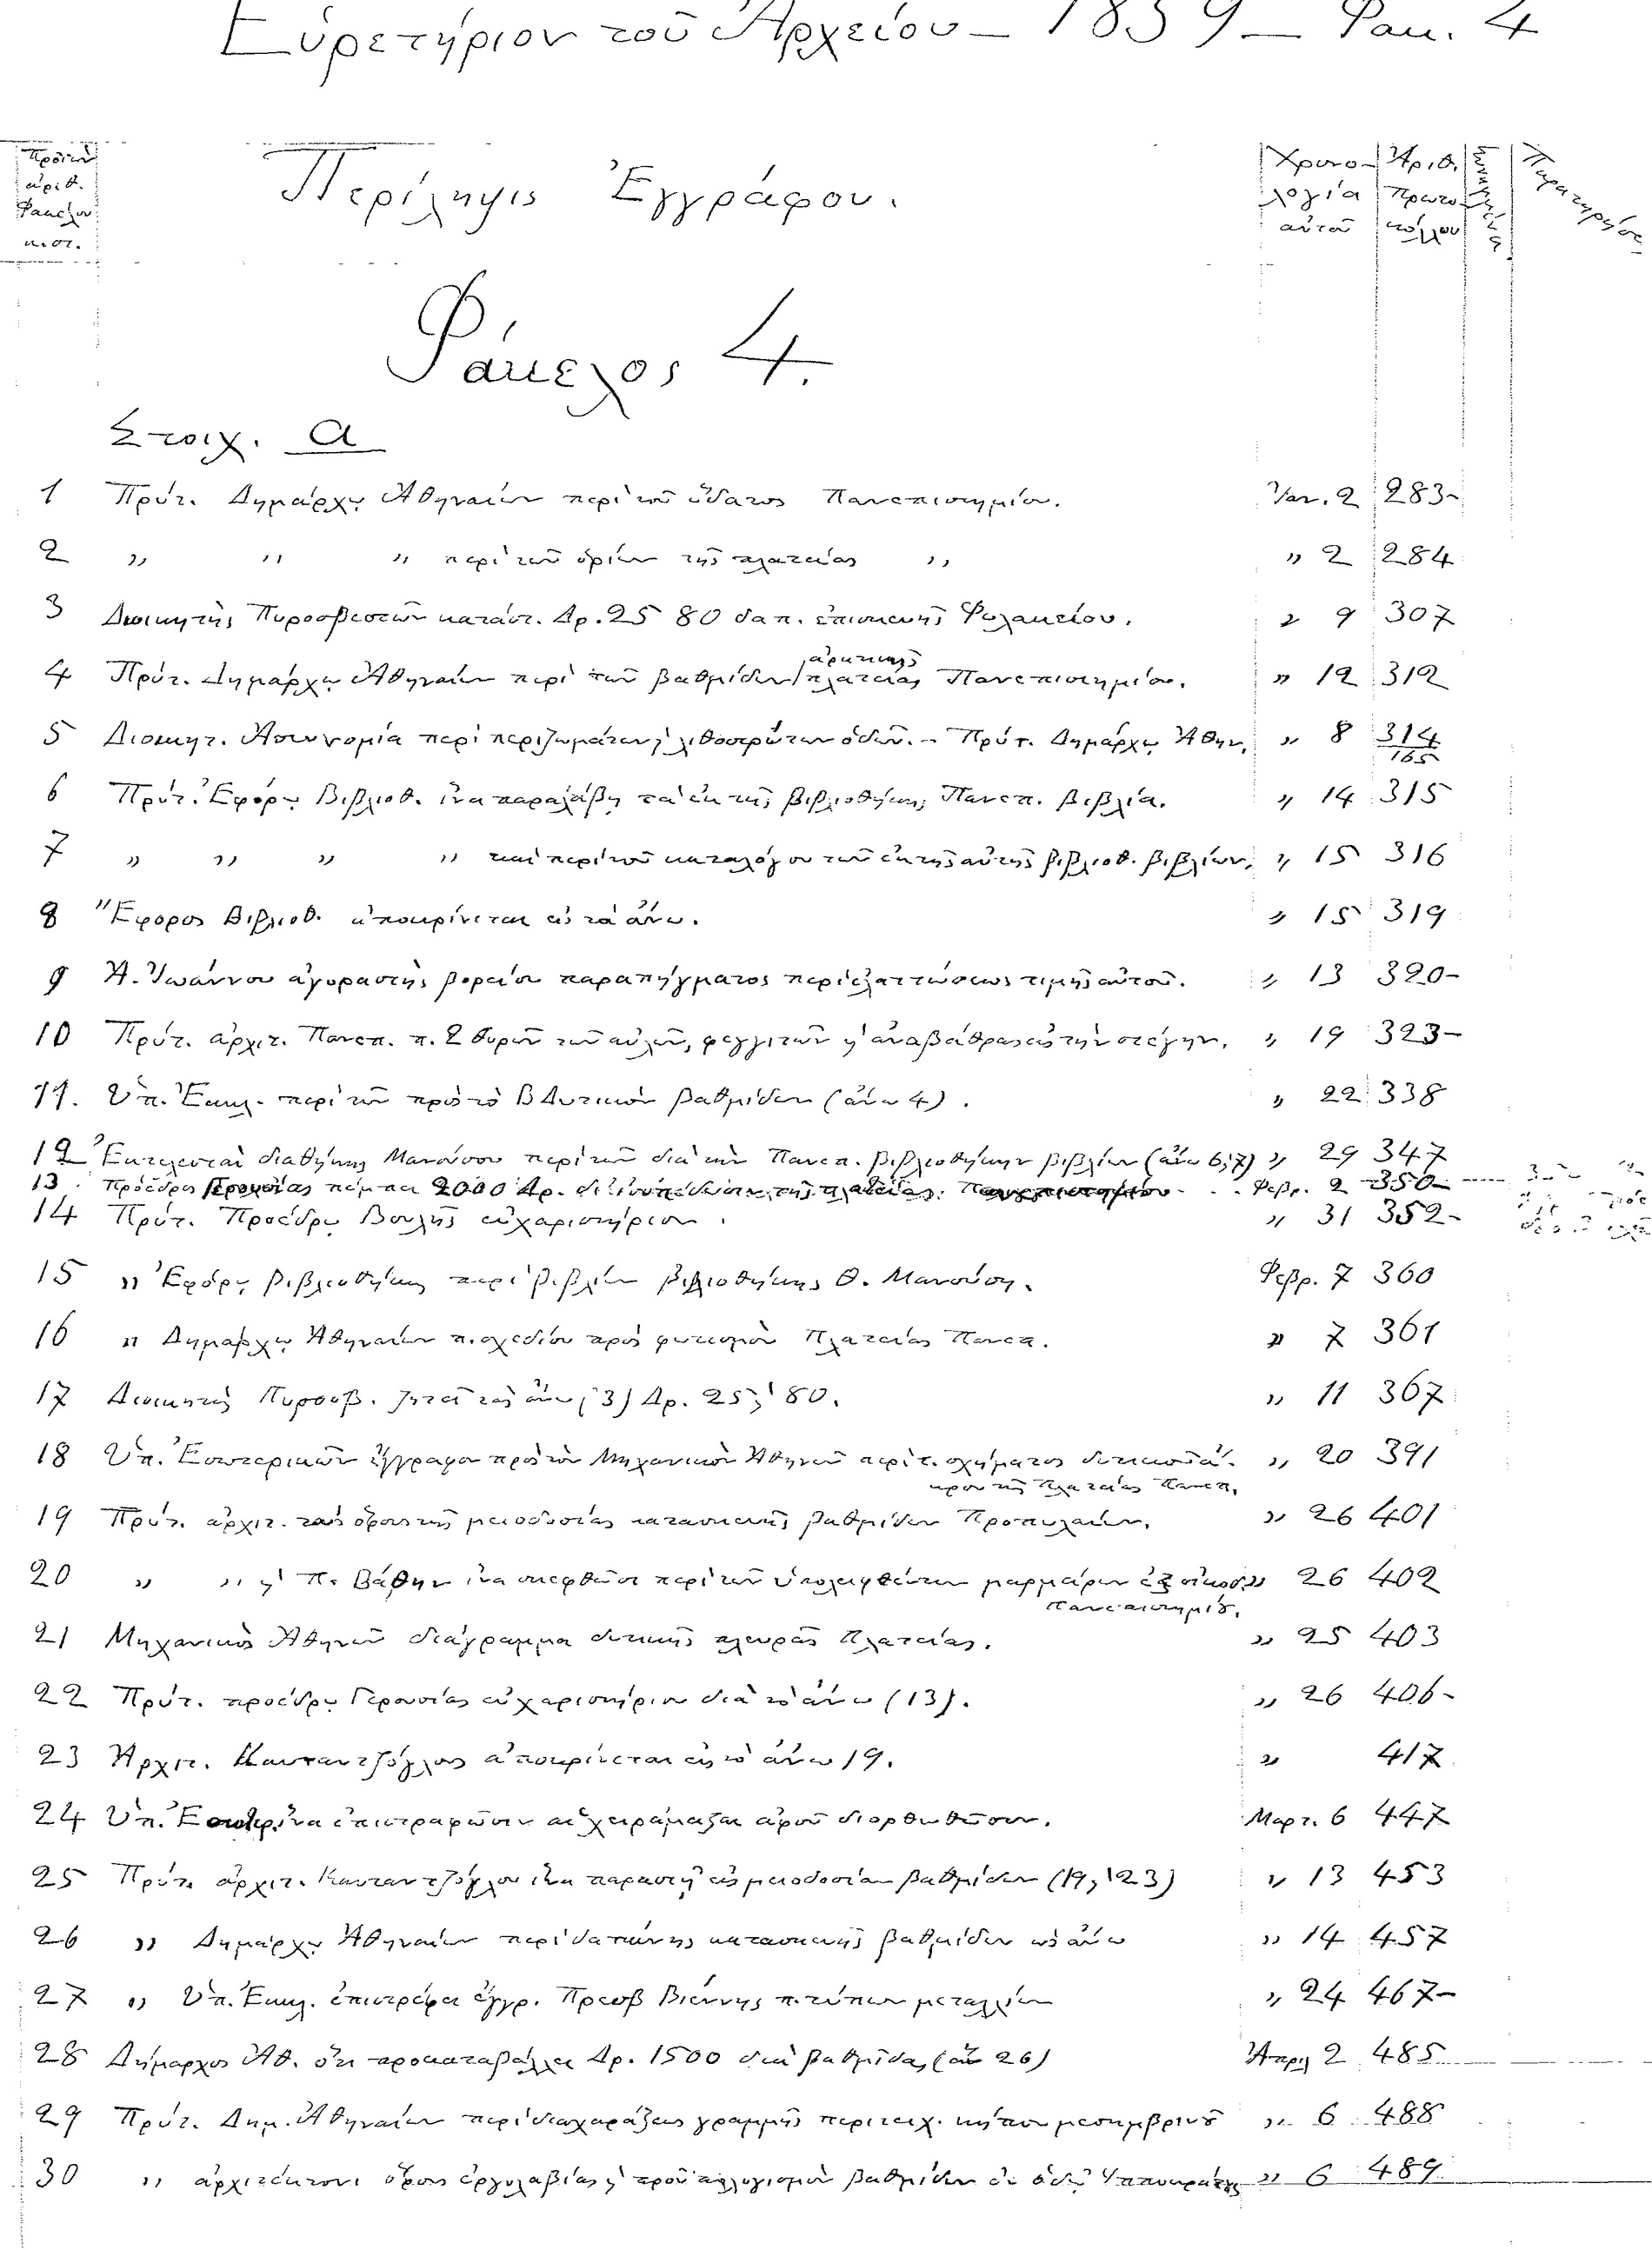 Εὑρετήριον τοῦ Ἀρχείου – 1859 – Φακ. 4
ἀριθ. Φακέλου κ. στ.
Περίληψις Ἐγγράφου.
Χρονολογία αὐτοῦ
Ἀριθ. Πρωτοκόλλου
Φάκελος 4.
Στοιχ. α
1 Πρύτ. Δημάρχῳ Ἀθηναίων περὶ τοῦ ὕδατος Πανεπιστημίου. Ἰαν. 2 283-
2 " " " περὶ τῶν ὁρίων τῆς πλατείας " " 2 284
3 Διοικητὴς Πυροσβεστῶν κατάστ. Δρ. 25 80 δαπ. ἐπισκευῆς Φυλακείου. " 9 307
4 Πρύτ. Δημάρχῳ Ἀθηναίων περὶ τῶν βαθμίδων πλατείας Πανεπιστημίου. " 12 312
5 Διοικητ. Ἀστυνομία περὶ περιζωμάτων λιθοστρώτων ὁδῶν. - Πρύτ. Δημάρχῳ Ἀθην. " 8 314
165
6 Πρύτ. Ἐφόρῳ Βιβλιοθ. ἵνα παραλάβῃ τὰ ἐκ τῆς βιβλιοθήκης Πανεπ. βιβλία. " 14 315
7 " " " " καὶ περὶ τοῦ καταλόγου τῶν ἐκ τῆς αὐτῆς βιβλιοθ. βιβλίων. " 15 316
8 Ἔφορος Βιβλιοθ. ἀποκρίνεται εἰς τὰ ἄνω. " 15 319
9 Ἀ. Ἰωάννου ἀγοραστὴς βορείου παραπήγματος περὶ ἐλαττώσεως τιμῆς αὐτοῦ. " 13 320-
10 Πρύτ. ἀρχιτ. Πανεπ. π. 2 θυρῶν τῶν αὐλῶν, φεγγιτῶν ἀναβάθρας εἰς τὴν στέγην. " 19 323-
11. Ὑπ. Ἐκκλ. περὶ τῶν πρὸς τὸ ΒΔυτικὸν βαθμίδων (ἄνω 4). " 22 338
12 Ἐκτελεσταὶ διαθήκης Μανούσου περὶ τῶν διὰ τὴν Πανεπ. βιβλιοθήκην βιβλίων (ἄνω 6, 7) " 29 347
13. Πρόεδρος Γερουσίας πέμπει 2000 Δρ. τῆς πλατείας Πανεπιστημίου. Φεβρ. 2 350
14 Πρύτ. Προέδρῳ Βουλῆς εὐχαριστήριον. " 31 352-
15 " Ἐφόρῳ βιβλιοθήκης περὶ βιβλίων βιβλιοθήκης Θ. Μανούση. Φεβρ. 7 360
16 " Δημάρχῳ Ἀθηναίων π. σχεδίου πρὸς φωτισμὸν Πλατείας Πανεπ. " 7 361
17 Διοικητὴς Πυροσβ. ζητεῖ τὰς ἄνω (3) Δρ. 25, 80. " 11 367
18 Ὑπ. Ἐσωτερικῶν ἔγγραφον πρὸς τὸν Μηχανικὸν Ἀθηνῶν περὶ τ. σχήματος δυτικοῦ ἄ- " 20 391
κρου τῆς Πλατείας Πανεπ.
19 Πρύτ. ἀρχιτ. τοὺς ὅρους τῆς μειοδοσίας κατασκευῆς βαθμίδων Προπυλαίων. " 26 401
20 " " Π. Βάθην ἵνα σκεφθῶσι περὶ τῶν ὑπολειφθέντων μαρμάρων ἐξ οἰκοδ. " 26 402
Πανεπιστημίου.
21 Μηχανικὸς Ἀθηνῶν διάγραμμα δυτικῆς πλευρᾶς Πλατείας. " 25 403
22 Πρύτ. προέδρῳ Γερουσίας εὐχαριστήριον διὰ τὸ ἄνω (13). " 26 406-
23 Ἀρχιτ. Καυταντζόγλους ἀποκρίνεται εἰς τὸ ἄνω 19. " 417
24 Ὑπ. Ἐσωτερ. ἵνα ἐπιστραφῶσιν αἱ χειράμαξαι ἀφοῦ διορθωθῶσιν. Μαρτ. 6 447
25 Πρύτ. ἀρχιτ. Καυταντζόγλου ἵνα παραστῇ εἰς μειοδοσίαν βαθμίδων (19, 23) " 13 453
26 " Δημάρχῳ Ἀθηναίων περὶ δαπάνης κατασκευῆς βαθμίδων ὡς ἄνω " 14 457
27 " Ὑπ. Ἐκκλ. ἐπιστρέφει ἔγγρ. Πρεσβ Βιέννης π. τύπων μεταλλίων " 24 467-
28 Δήμαρχος Ἀθ. ὅτι προκαταβάλλει Δρ. 1500 διὰ βαθμίδας (ἄνω 26) Ἀπρίλ 2 485
29 Πρύτ. Δημ. Ἀθηναίων περὶ διαχαράξεως γραμμῆς περιτειχ. κήπου μεσημβρινοῦ " 6 488
30 " ἀρχιτέκτονι ὅρους ἐργολαβίας προϋπολογισμὸν βαθμίδων ἐν ὁδῷ Ἱπποκράτους " 6 489